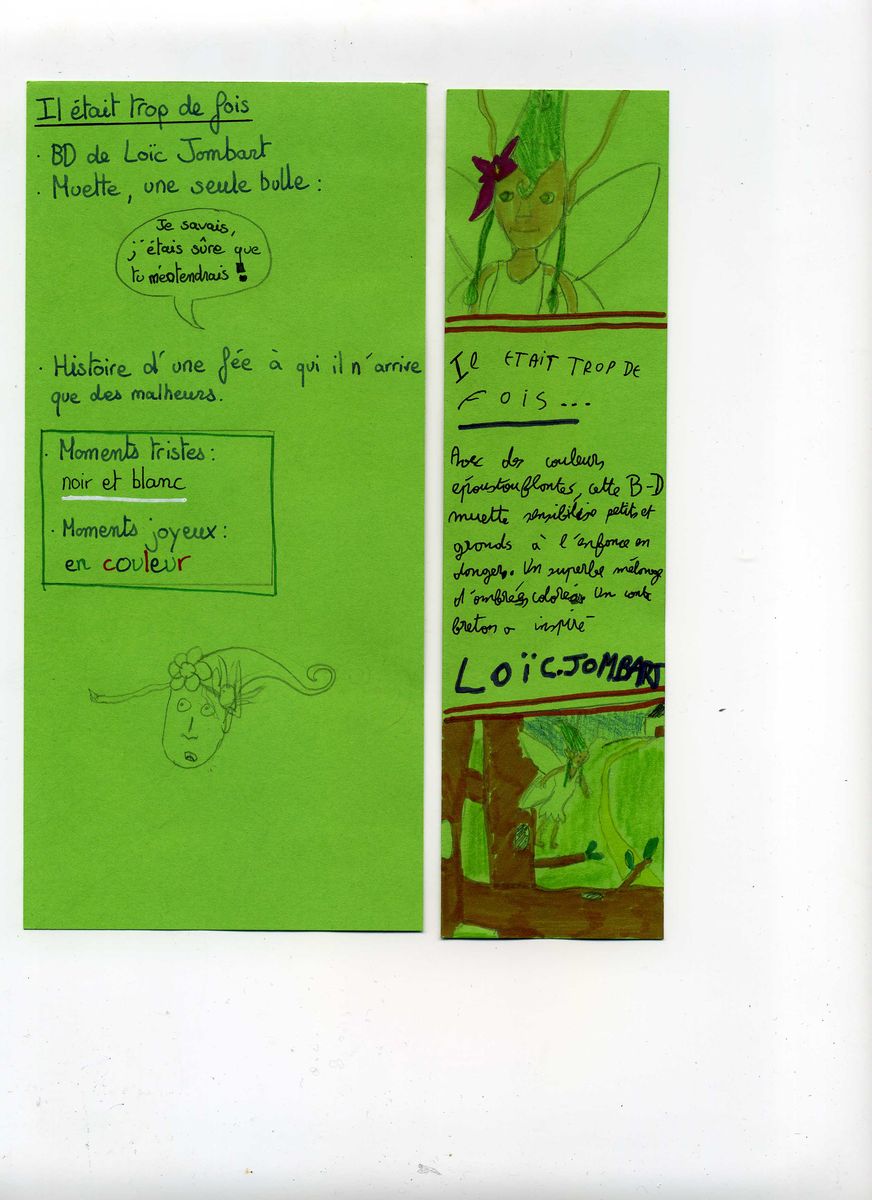 Il était trop de fois
· BD de Loïc Jombart
· Muette, une seule bulle :
Je savais,
j'étais sûre que
tu m'entendrais !
· Histoire d'une fée à qui il n'arrive
que des malheurs.
· Moments tristes :
noir et blanc
· Moments joyeux :
en couleur
Il ETAIT TROP DE
FOIS...
Avec des couleurs
epoustouflantes, cette B-D
muette sensibilise petits et
grands à l'enfance en
danger. Un superbe mélange
d'ombrées colorées Un conte
breton a inspiré
LOÏC.JOMBART